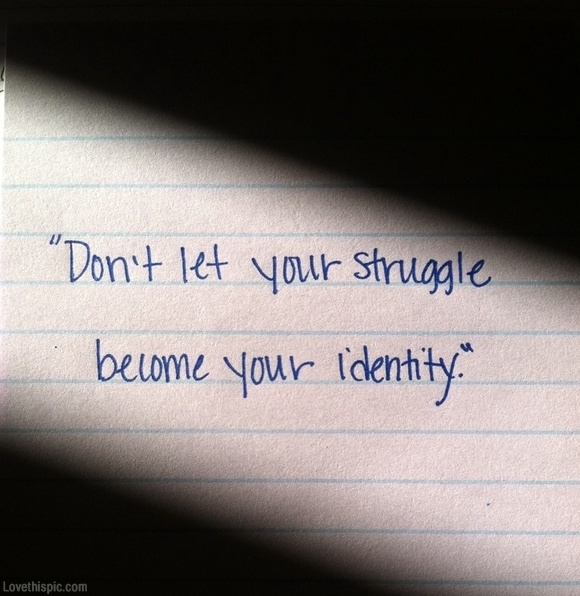 "Don't let your struggle
become your identity."
Lovethispic.com